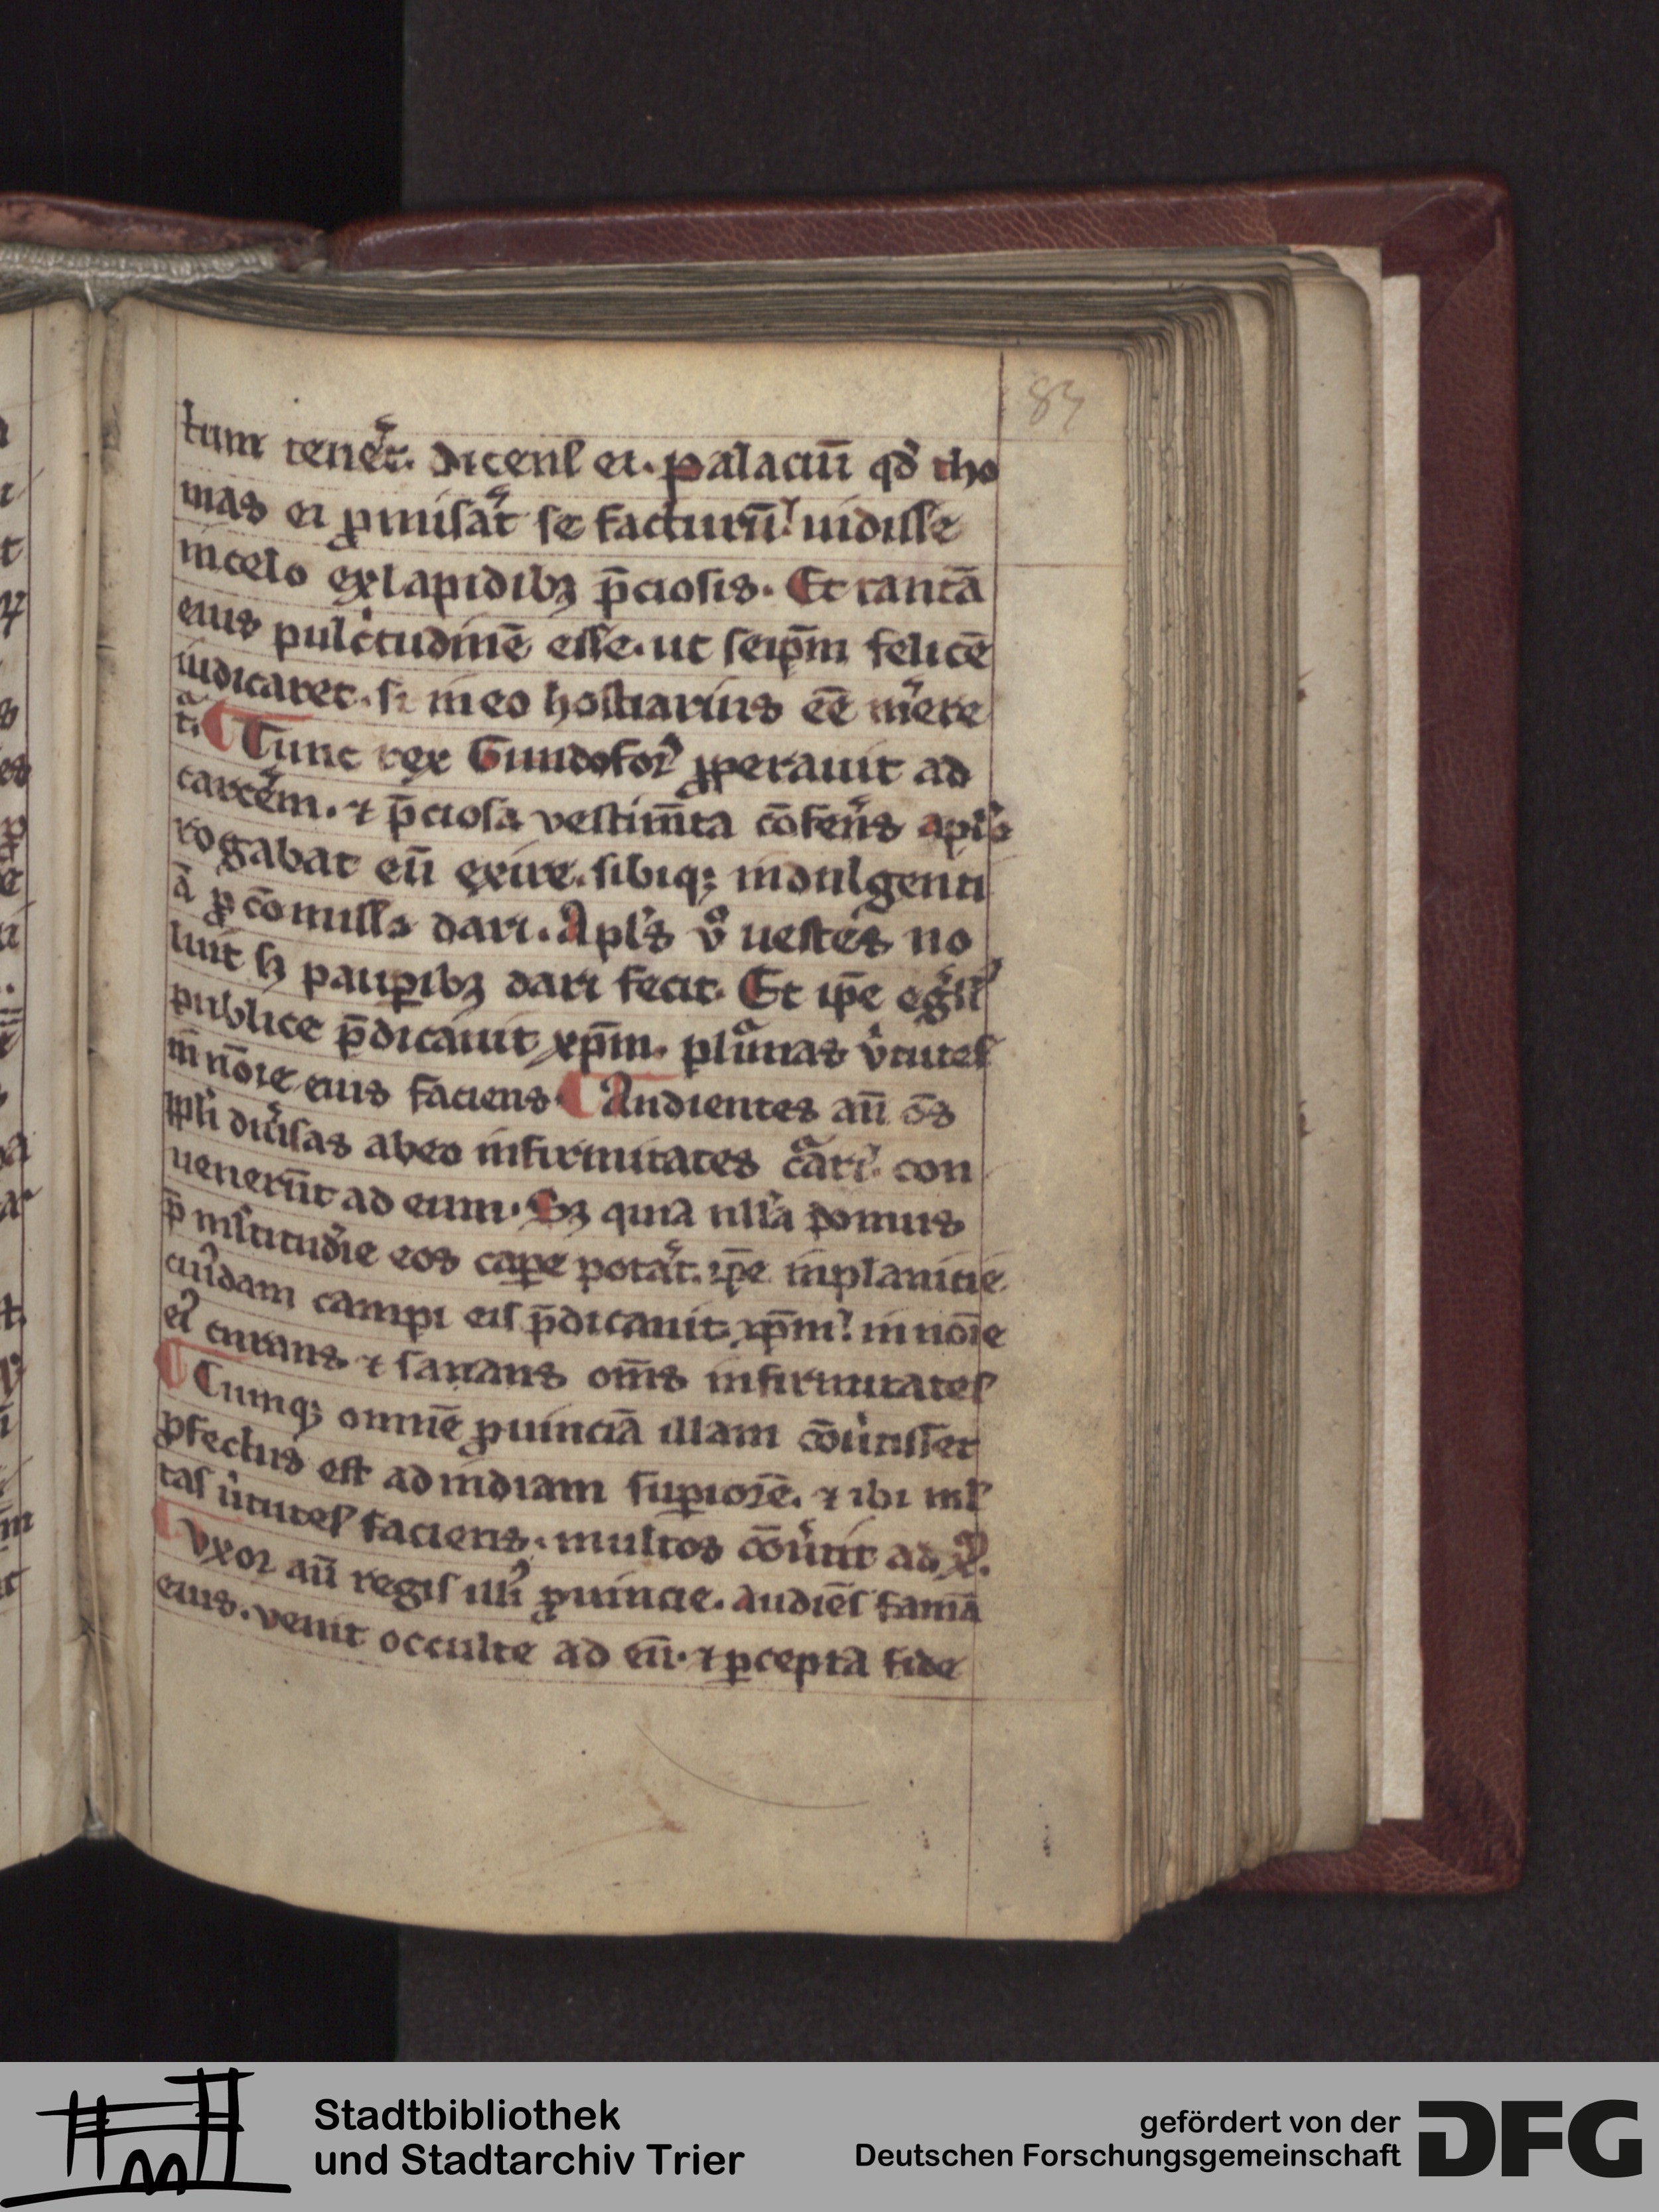 83
tum teneret. dicens ei. palaciū qd̛ tho
mas ei ꝓmiserat se facturū! uidisse
in celo ex lapidibꝫ p̄ciosis. Et tantā
eius pulcͥtudinē esse. ut seip̄m felicē
iudicaret. si in eo hostiarius eē m̛ere
t̛. Tunc rex Gundofor̛ ꝓperauit ad
carcēm. ⁊ p̄ciosa vestim̄ta cōferēs apl̛o
rogabat eū exire. sibiqꝫ indulgenti
ā ꝓ cōmissis dari. Apl̛s v̊ uestes no
luit sꝫ paupibꝫ dari fecit. Et ip̄e eg̛ss̛
publice p̄dicauit xp̄m. plͥmas v̛tutes
in nōie eius faciens. Audientes aū ōs
ip̄li diưsas ab eo infirmitates cͣari. con
uenerūt ad eum. Sꝫ quia ull̛a domus
p̄ ml̛titudīe eos capꝑe pot̛at. ip̄e in planicie
cui̛dam campi eis p̄dicauit xp̄m! in nōie
ei̛ curans ⁊ sanans om̄s infirmitates
Cumqꝫ omnē ꝓuinciā illam cōưtisset
ꝓfectus est ad indiam suꝑiorē. ⁊ ibi ml̛
tas ưtutes faciens. multos cōưtit ad x̄.
Vxor aū regis illi̛ ꝓuincie. audiēs famā
eius. venit occulte ad eū. ⁊ ꝑcepta fide
Stadtbibliothek
und Stadtarchiv Trier
gefördert von der
Deutschen Forschungsgemeinschaft
DFG